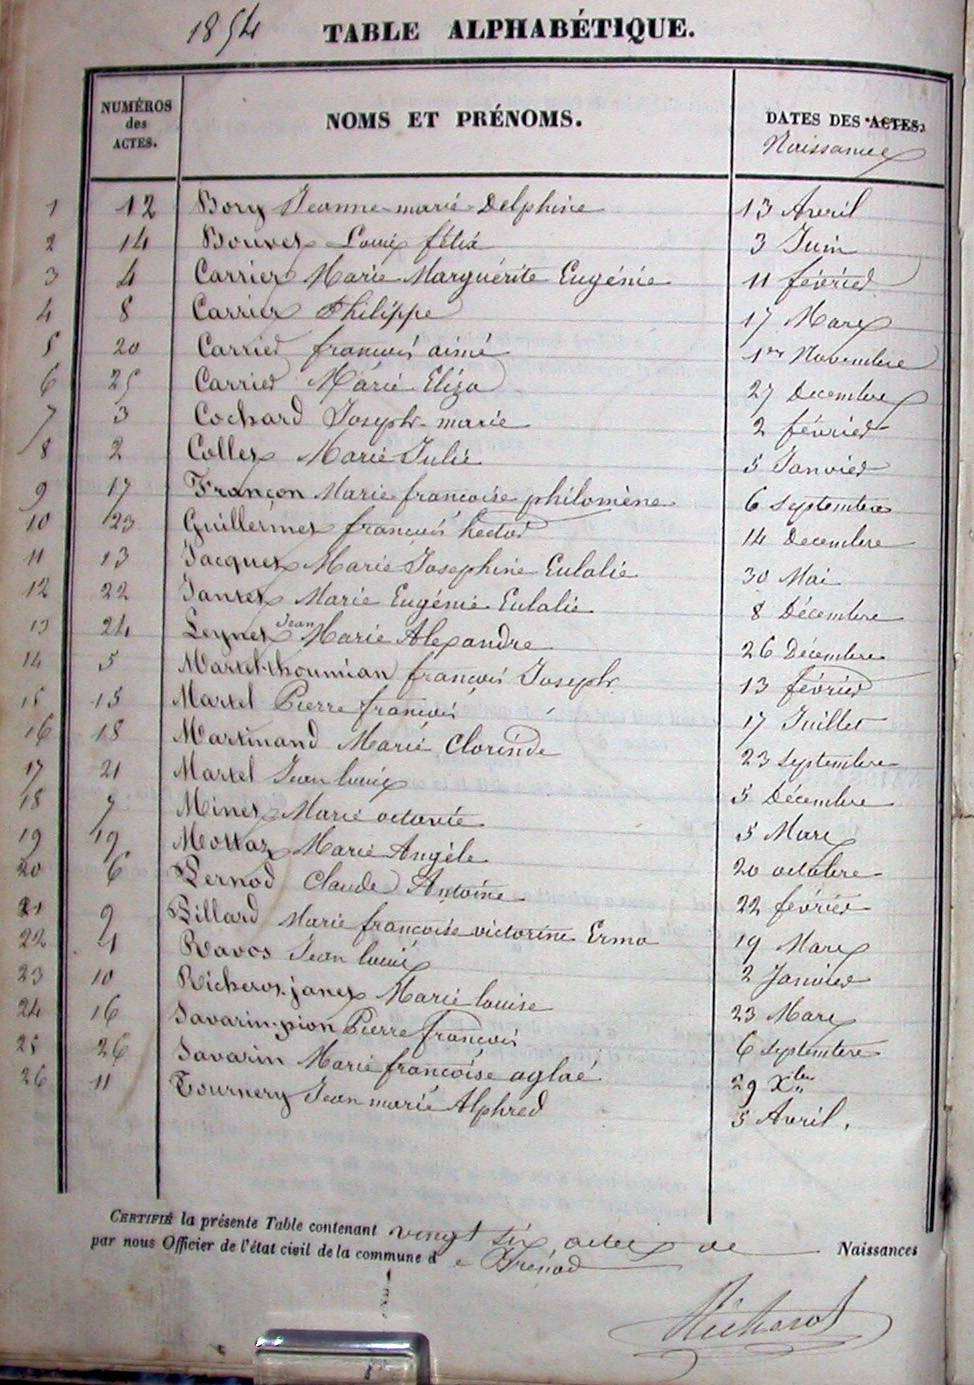 1854
TABLE ALPHABÉTIQUE.
NUMÉROS des ACTES. NOMS ET PRÉNOMS. DATES DES ACTES.
Naissances
1 12 Bory Jeanne-marie-Delphine 13 Avril
2 14 Bouvet Louis félix 3 Juin
3 4 Carrier Marie Marguérite Eugénie 11 février
4 8 Carrier Philippe 17 Mars
5 20 Carrier françois aimé 1er Novembre
6 25 Carrier Marie Eliza 27 Decembre
7 3 Cochard Joseph-marie 2 février
8 2 Collex Marie Julie 5 Janvier
9 17 Françon Marie francoise philomène 6 Septembre
10 23 Guillermet françois hector 14 Decembre
11 13 Jacquet Marie Josephine Eulalie 30 Mai
12 22 Jantet Marie Eugénie Eulalie 8 Décembre
13 24 Leynet Jean Marie Alexandre 26 Décembre
14 5 Martel-thoumian françois Joseph 13 février
15 15 Martel Pierre françois 17 Juillet
16 18 Martinand Marie Clorinde 23 Septembre
17 21 Martel Jean louis 5 Décembre
18 7 Minet Marie octavie 5 Mars
19 19 Mottaz Marie Angèle 20 octobre
20 6 Pernod Claude Antoine 22 février
21 9 Billard Marie francoise victorine Erma 19 Mars
22 1 Ravos Jean louis 2 Janvier
23 10 Richerot-janex Marie louise 23 Mars
24 16 Savarin-pion Pierre françois 6 Septembre
25 26 Savarin Marie françoise aglaé 29 Xbre
26 11 Tournery Jean marie Alphred 5 Avril.
CERTIFIÉ la présente Table contenant vingt six actes de Naissances
par nous Officier de l'état civil de la commune de Thénod
Richerot